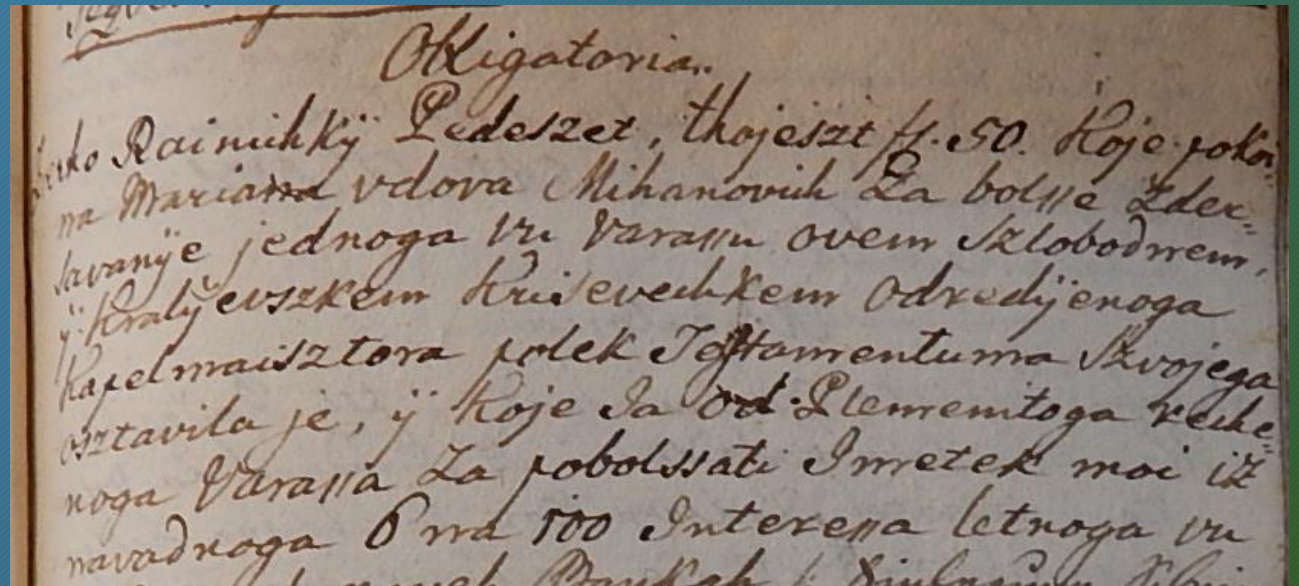 Obligatoria.
Rainichky Pedeszet, thojeszt fl. 50. Koje pokoi=
na Mariana vdova Mihanovich Za bolsse Zder=
savanÿe jednoga vu Varassu ovem Szlobodnem,
ÿ Kralÿevszkem Krisevechkem odredÿenoga
Kapelmaisztora polek Testamentuma Szvojega
osztavila je, ÿ Koje Ja od Plemenitoga reche=
noga Varassa Za pobolssati Imetek moi iz
navadnoga 6 na 100 Interessa letnoga vu